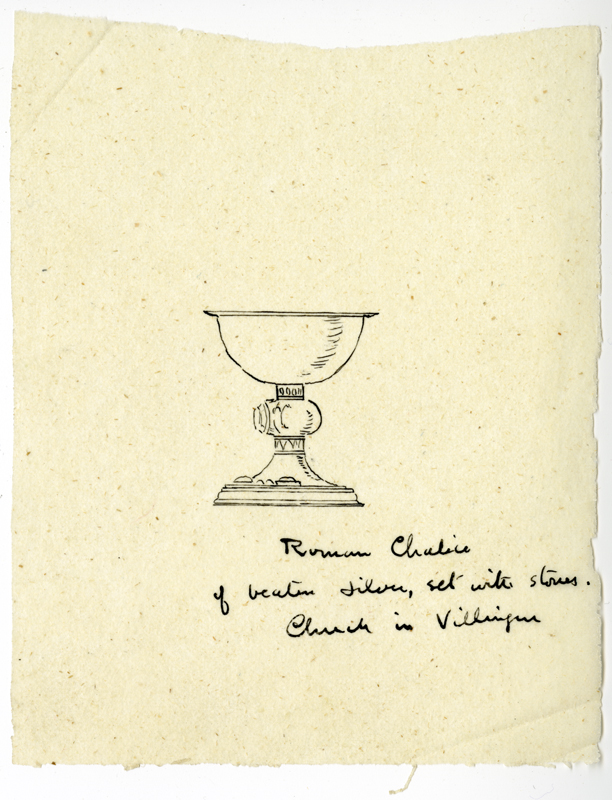 Roman Chalice
of beaten silver, set with stones.
Church in Villingen